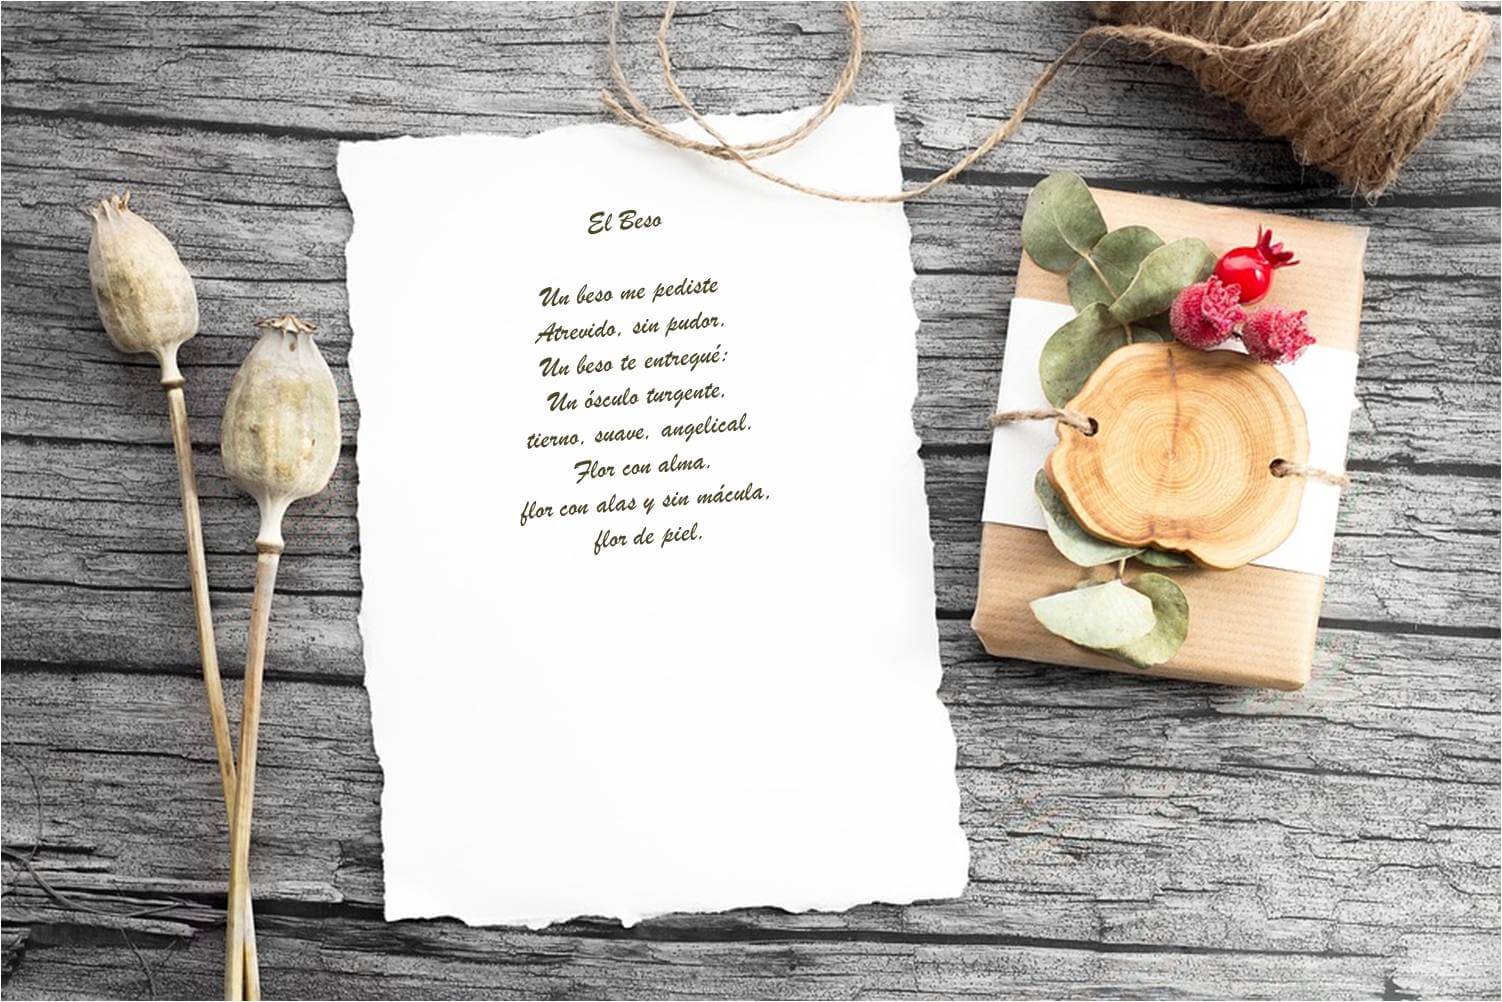 El Beso
Un beso me pediste
Atrevido, sin pudor.
Un beso te entregué:
Un ósculo turgente,
tierno, suave, angelical.
Flor con alma,
flor con alas y sin mácula,
flor de piel.